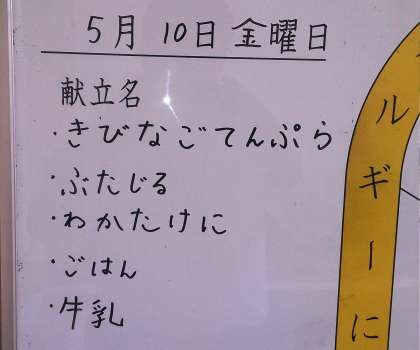 5月 10日 金曜日
献立名
・きびなごてんぷら
・ぶたじる
・わかたけに
・ごはん
・牛乳
ルギーに